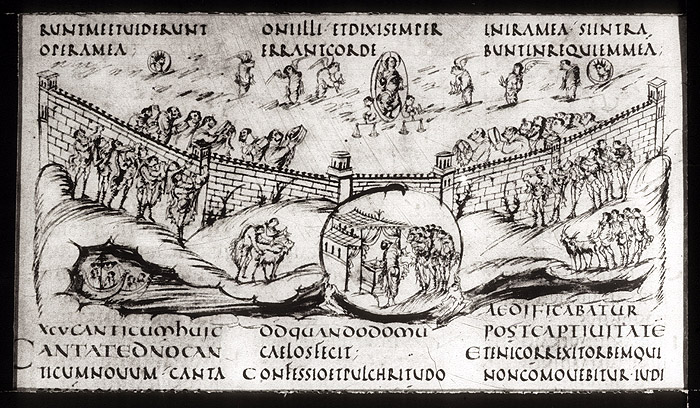 RUNTMEETUIDERUNT
OPERAMEA;
ONIILLI· ETDIXISEMPER
ERRANTCORDE
INIRAMEA· SIINTRA
BUNTINREQUIEMMEA;
XCVCANTICUMHUIC
CANTATEDNOCAN
TICUMNOUUM· CANTA
ODQUANDODOMU
CAELOSFECIT;
CONFESSIOETPULCHRITUDO
AEDIFICABATUR
POSTCAPTIUITATĒ
ETENICORREXITORBEMQUI
NONCOMOUEBITUR· IUDI